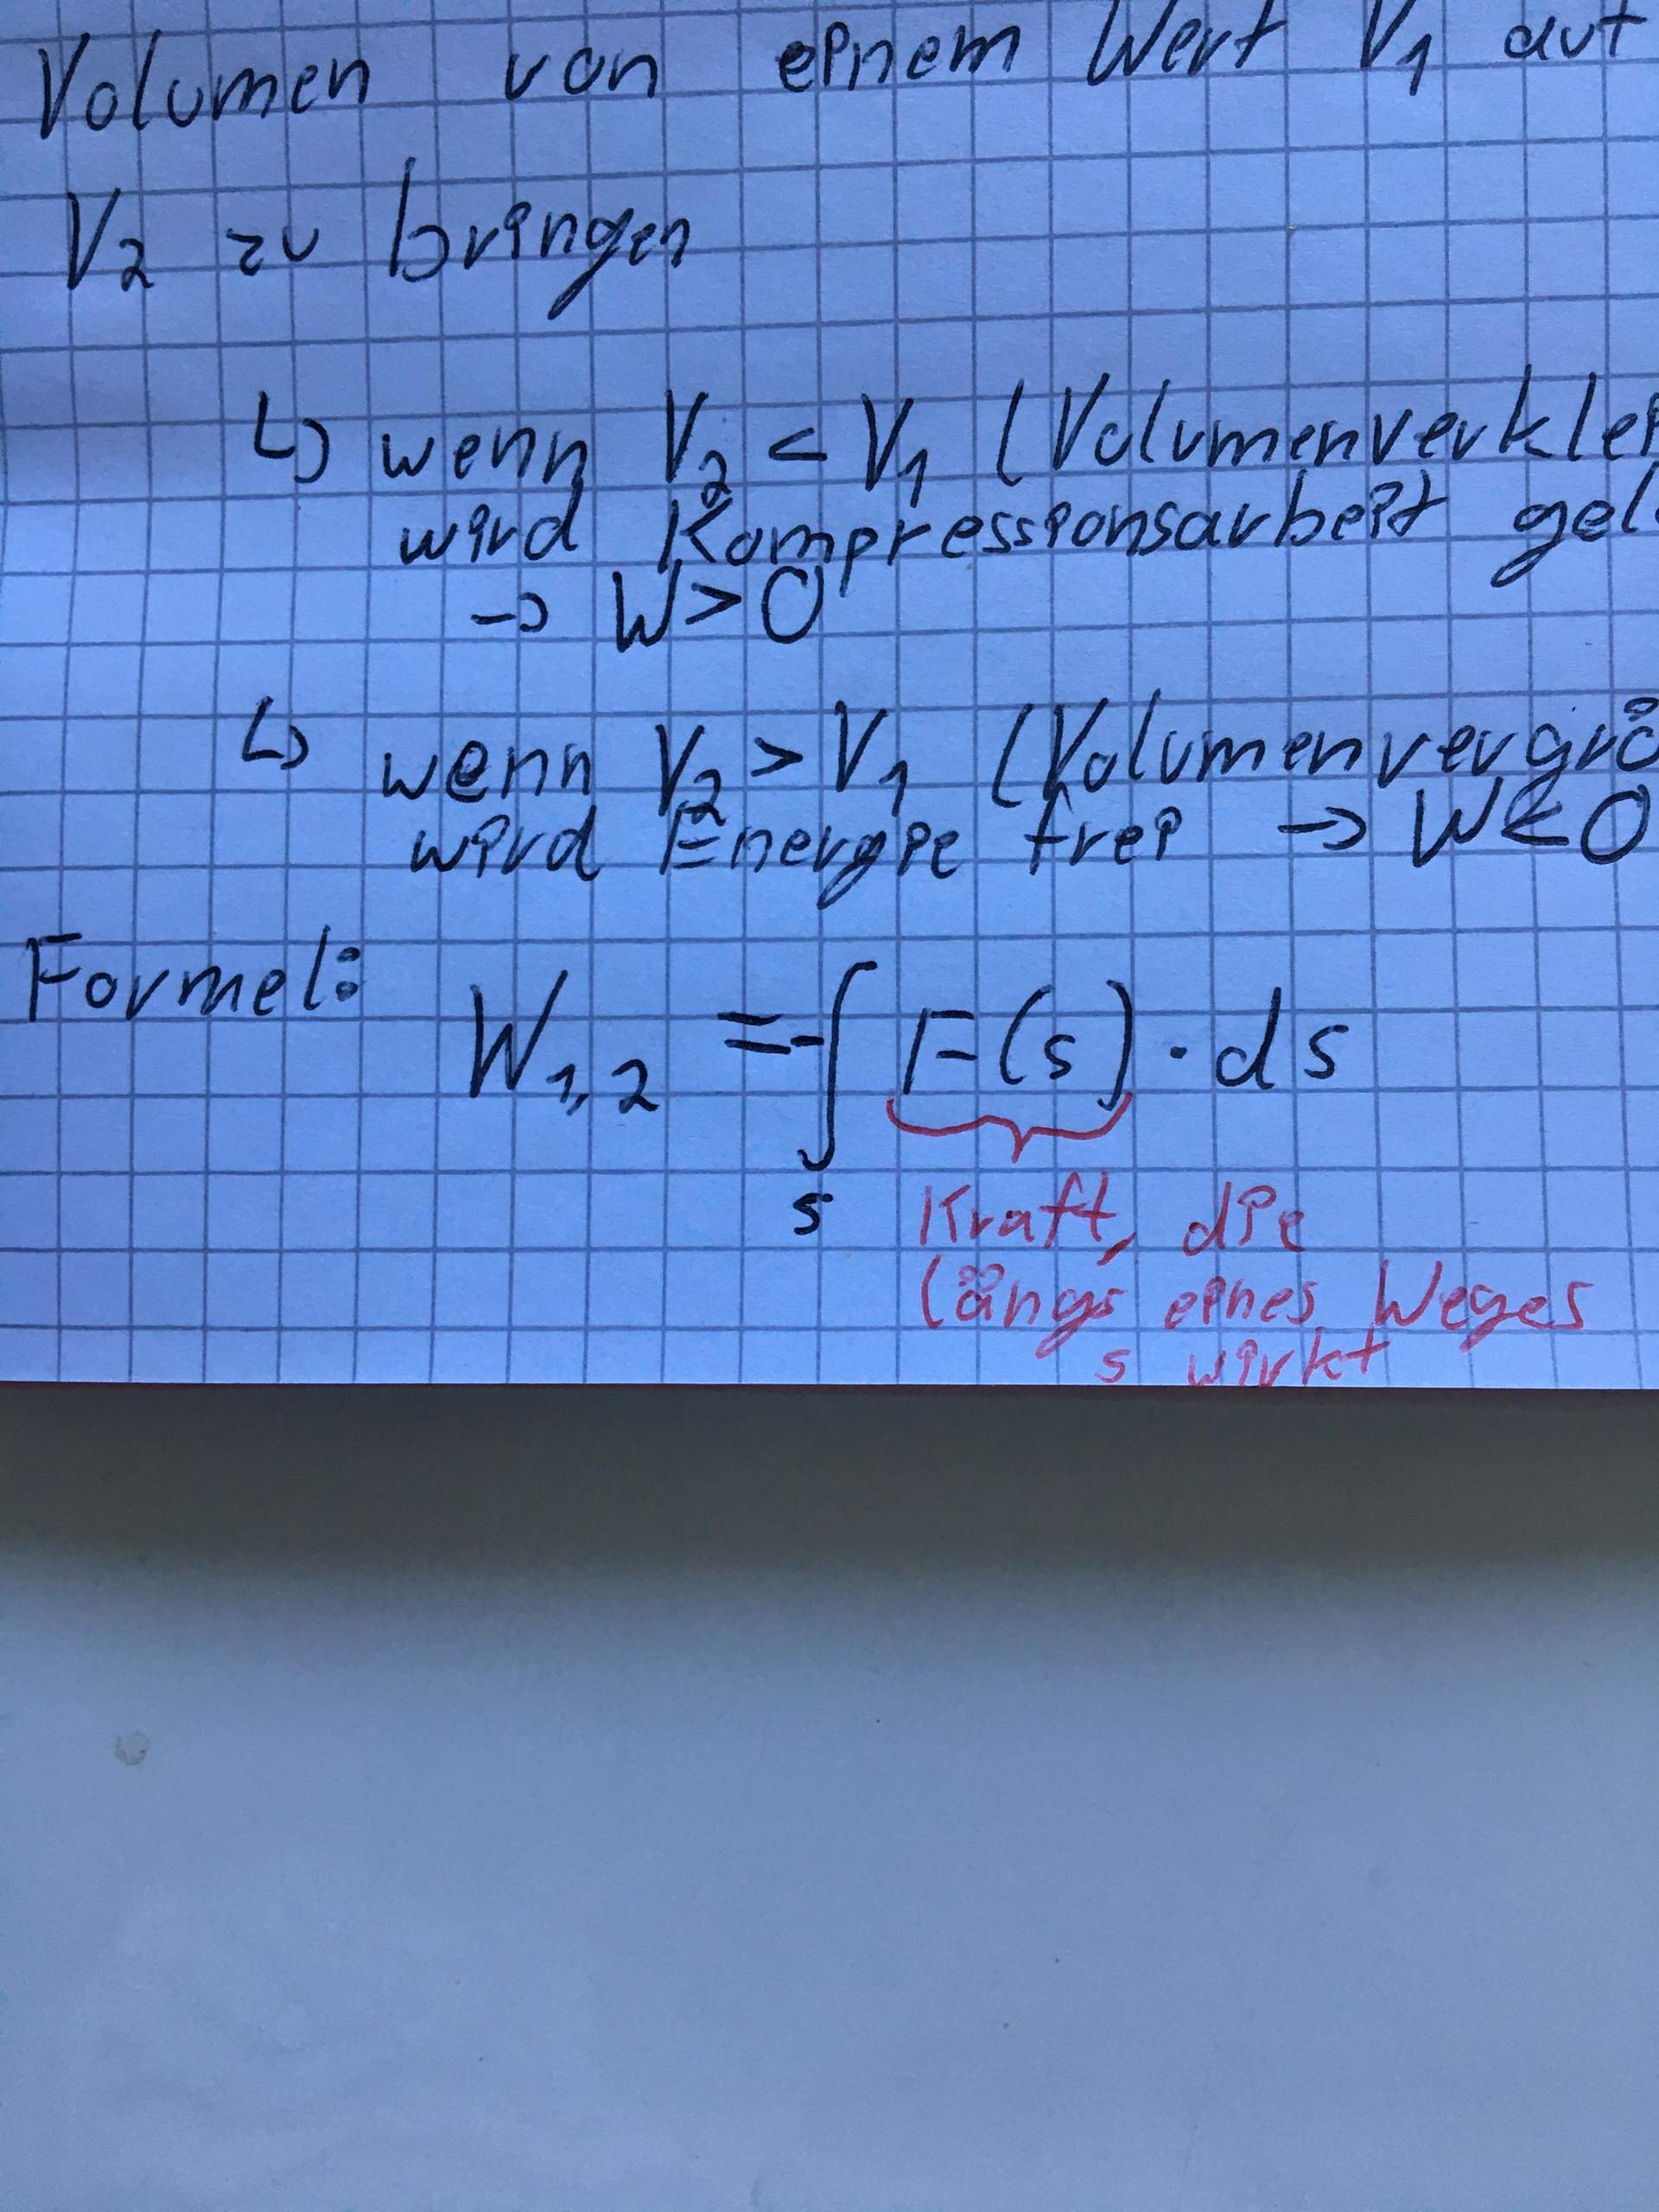 Volumen von einem Wert V₁ auf
V₂ zu bringen
↳ wenn V₂ < V₁ (Volumenverklei
wird Kompressionsarbeit gel
→ W > 0
↳ wenn V₂ > V₁ (Volumenvergrö
wird Energie frei → W < 0
Formel:
W₁,₂ = -∫ F(s) · ds
s
Kraft, die
längs eines Weges
s wirkt